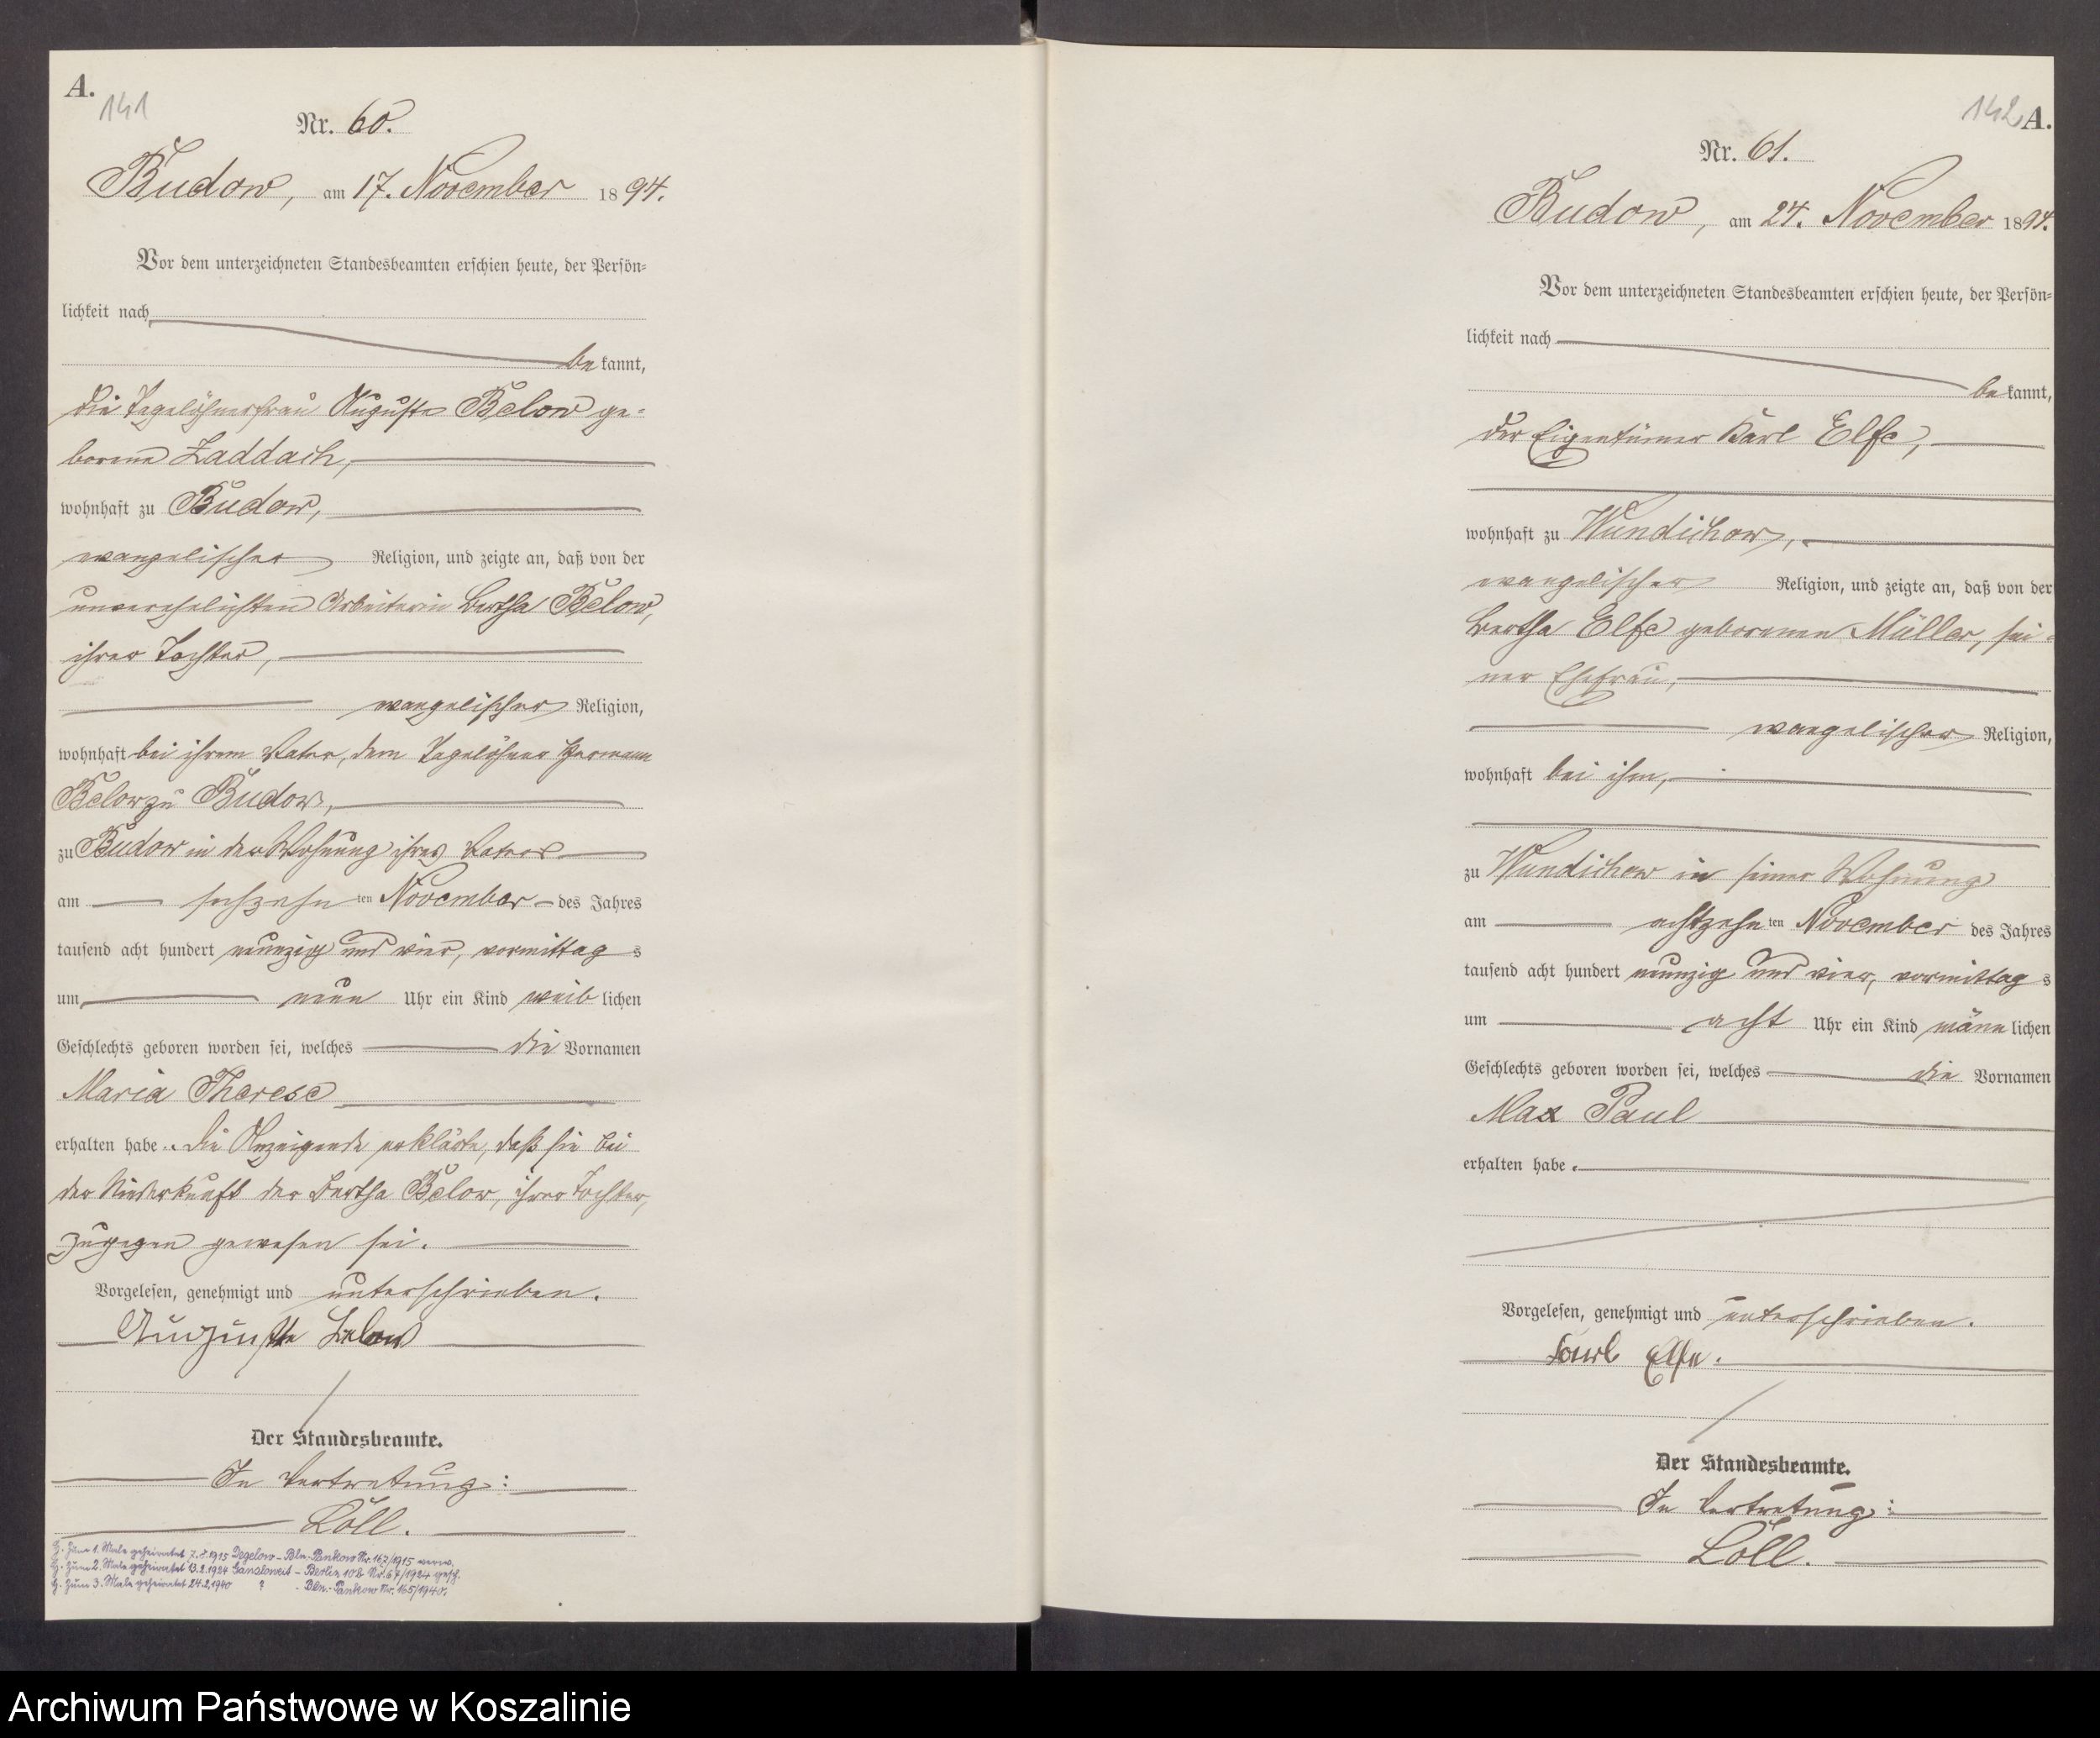 A.
141
Nr. 60.
Budow, am 17. November 1894.
Vor dem unterzeichneten Standesbeamten erschien heute, der Persön-
lichkeit nach
be kannt,
die Tagelöhnerfrau Auguste Below ge-
borene Laddach,
wohnhaft zu Budow,
evangelischer Religion, und zeigte an, daß von der
unverehelichten Arbeiterin Bertha Below,
ihrer Tochter,
evangelischer Religion,
wohnhaft bei ihrem Vater, dem Tagelöhner Hermann
Below zu Budow,
zu Budow in der Wohnung ihres Vaters
am sechzehn ten November des Jahres
tausend acht hundert neunzig und vier, vormittag s
um neun Uhr ein Kind weib lichen
Geschlechts geboren worden sei, welches die Vornamen
Maria Therese
erhalten habe. Die Anzeigende erklärte, daß sie bei
der Niederkunft der Bertha Below, ihrer Tochter,
zugegen gewesen sei.
Vorgelesen, genehmigt und unterschrieben.
Auguste Below
Der Standesbeamte.
In Vertretung:
Löll.
H. Zum 1. Male geheiratet 1915 Degelow - Bln.-Pankow Nr. 167/1915 verw.
H. Zum 2. Male geheiratet 13.2.1924 Gansloweit - Berlin 10b Nr. 67/1924 gesch.
H. Zum 3. Male geheiratet 24.2.1940 ? - Bln.-Pankow Nr. 165/1940.
142 A.
Nr. 61.
Budow, am 24. November 1894.
Vor dem unterzeichneten Standesbeamten erschien heute, der Persön-
lichkeit nach
be kannt,
der Eigentümer Karl Elfe,
wohnhaft zu Wundichow,
evangelischer Religion, und zeigte an, daß von der
Bertha Elfe geborenen Müller, sei-
ner Ehefrau,
evangelischer Religion,
wohnhaft bei ihm,
zu Wundichow in seiner Wohnung
am achtzehn ten November des Jahres
tausend acht hundert neunzig und vier, vormittag s
um acht Uhr ein Kind männ lichen
Geschlechts geboren worden sei, welches die Vornamen
Max Paul
erhalten habe.
Vorgelesen, genehmigt und unterschrieben.
Karl Elfe.
Der Standesbeamte.
In Vertretung:
Löll.
Archiwum Państwowe w Koszalinie